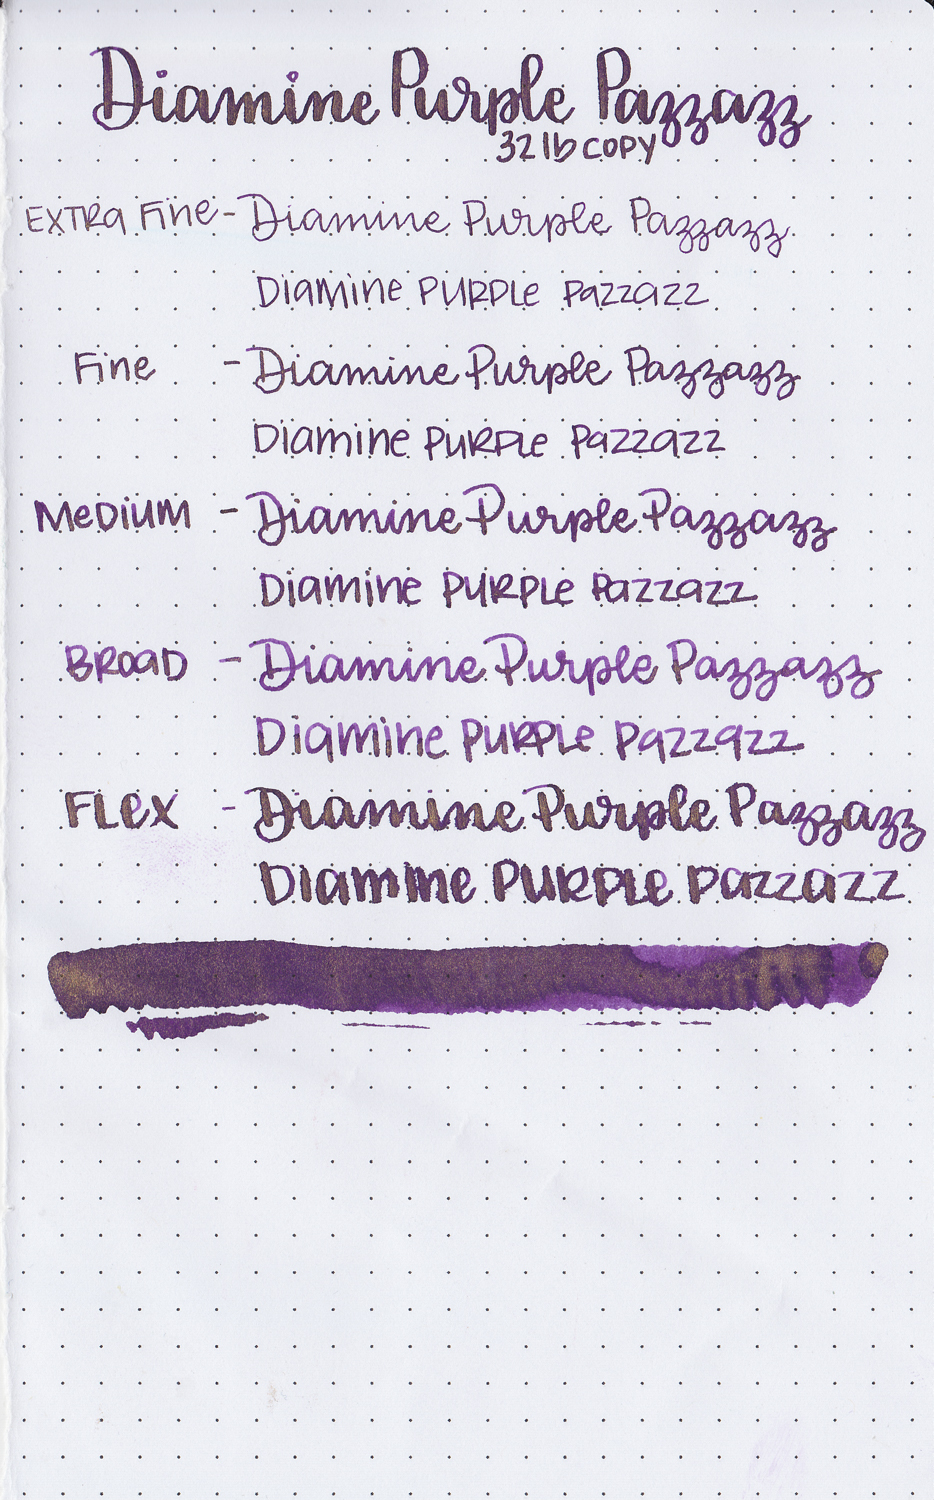 Diamine Purple Pazzazz
32 lb COPY
EXTRA Fine - Diamine Purple Pazzazz
Diamine PURPLe Pazzazz
Fine - Diamine Purple Pazzazz
Diamine PURPLe Pazzazz
MeDiUM - Diamine Purple Pazzazz
Diamine PURPLe Pazzazz
BROaD - Diamine Purple Pazzazz
Diamine PURPLe Pazzazz
FLex - Diamine Purple Pazzazz
Diamine PURPLe Pazzazz